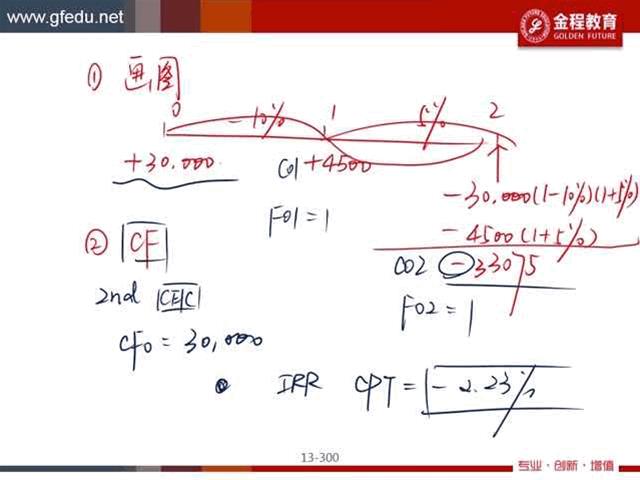 www.gfedu.net
金程教育
GOLDEN FUTURE
① 画图
0 -10% 1 5% 2
+30.000 C01 +4500
-30.000(1-10%)(1+5%)
F01=1
-4500(1+5%)
② CF
C02 -33075
2nd CE|C
F02=1
CF0=30,000
IRR CPT=-2.23%
13-300
专业·创新·增值